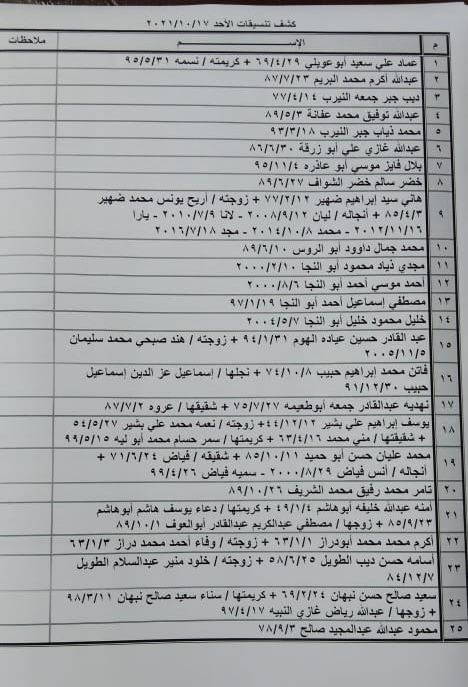 كشف تنسيقات الأحد ٢٠٢١/١٠/١٧
م الإســـــــم ملاحظات
١ عماد علي سعيد أبوعويلي ٦٩/٤/٢٩ + كريمته / نسمه ٩٥/٥/٣١
٢ عبدالله أكرم محمد البريم ٨٧/٧/٢٣
٣ ديب جبر جمعه النيرب ٧٧/٤/١٤
٤ عبدالله توفيق محمد عفانة ٨٩/٥/٣
٥ محمد ذياب جبر النيرب ٩٣/٣/١٨
٦ عبدالله غازي علي أبو زرقة ٨٦/٦/٣٠
٧ بلال فايز موسي أبو عاذره ٩٥/١١/٤
٨ خضر سالم خضر الشواف ٨٩/٦/٢٧
هاني سيد إبراهيم ضهير ٧٧/٢/١٢ + زوجته / أريج يونس محمد ضهير
٩ ٨٥/٤/٣ + أنجاله / ليان ٢٠٠٨/٩/١٢ - لانا ٢٠١٠/٧/٩ - يارا
٢٠١٢/١١/١٦ - محمد ٢٠١٤/١٠/٨ - مجد ٢٠١٦/٧/١٨
١٠ محمد جمال داوود أبو الروس ٨٩/٦/١٠
١١ مجدي ذياد محمود أبو النجا ٢٠٠٠/٢/١٠
١٢ أحمد موسي أحمد أبو النجا ٢٠٠٠/٨/٦
١٣ مصطفي إسماعيل أحمد أبو النجا ٩٧/١/١٩
١٤ خليل محمود خليل أبو النجا ٢٠٠٤/٥/٧
١٥ عبد القادر حسين عياده الهوم ٩٤/١/٣١ + زوجته / هند صبحي محمد سليمان
٢٠٠٥/١١/٥
١٦ فاتن محمد إبراهيم حبيب ٧٤/١٠/٨ + نجلها / إسماعيل عز الدين إسماعيل
حبيب ٩١/١٢/٣٠
١٧ نهديه عبدالقادر جمعه أبوطعيمه ٧٥/٧/٢٧ + شقيقها / عروه ٨٧/٧/٢
١٨ يوسف إبراهيم علي بشير ٤٤/١٢/١٢+ زوجته / نعمه محمد علي بشير ٥٤/٥/٢٧
+ شقيقتها / مني محمد ٦٣/٤/١٦ + كريمتها / سمر حسام محمد أبو ليه ٩٩/٥/١٥
١٩ محمد عليان حسن أبو حميد ٨٥/١٠/١١ + شقيقه / فياض ٧١/٦/٢٤ +
أنجاله / أنس فياض ٢٠٠٠/٨/٢٩ - سميه فياض ٩٩/٤/٢٦
٢٠ تامر محمد رفيق محمد الشريف ٨٩/١٠/٢٦
٢١ أمنه عبدالله خليفه أبوهاشم ٤٩/١/٤ + كريمتها / دعاء يوسف هاشم أبوهاشم
٨٥/٩/٢٣ + زوجها / مصطفي عبدالكريم عبدالقادر أبوالعوف ٨٩/١٠/١
٢٢ أكرم محمد محمد أبودراز ٦٣/١/١ + زوجته / وفاء أحمد محمد دراز ٦٣/١/٣
٢٣ أسامه حسن ديب الطويل ٥٨/٦/٢٥ + زوجته / خلود منير عبدالسلام الطويل
٨٤/١٢/٧
٢٤ سعيد صالح حسن نبهان ٦٩/٢/٢٤ + كريمتها / سناء سعيد صالح نبهان ٩٨/٣/١١
+ زوجها / عبدالله رياض غازي النبيه ٩٧/٤/١٧
٢٥ محمود عبدالله عبدالمجيد صالح ٧٨/٩/٣